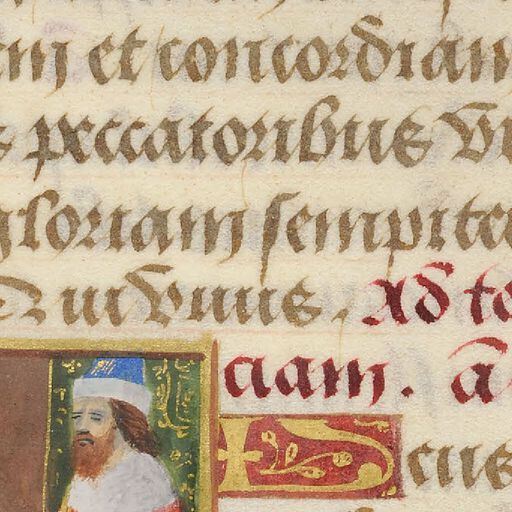 em et concordiam
s peccatoribus vi
gloriam sempiter
Qui vivis. Ad ter
ciam. a
Deus